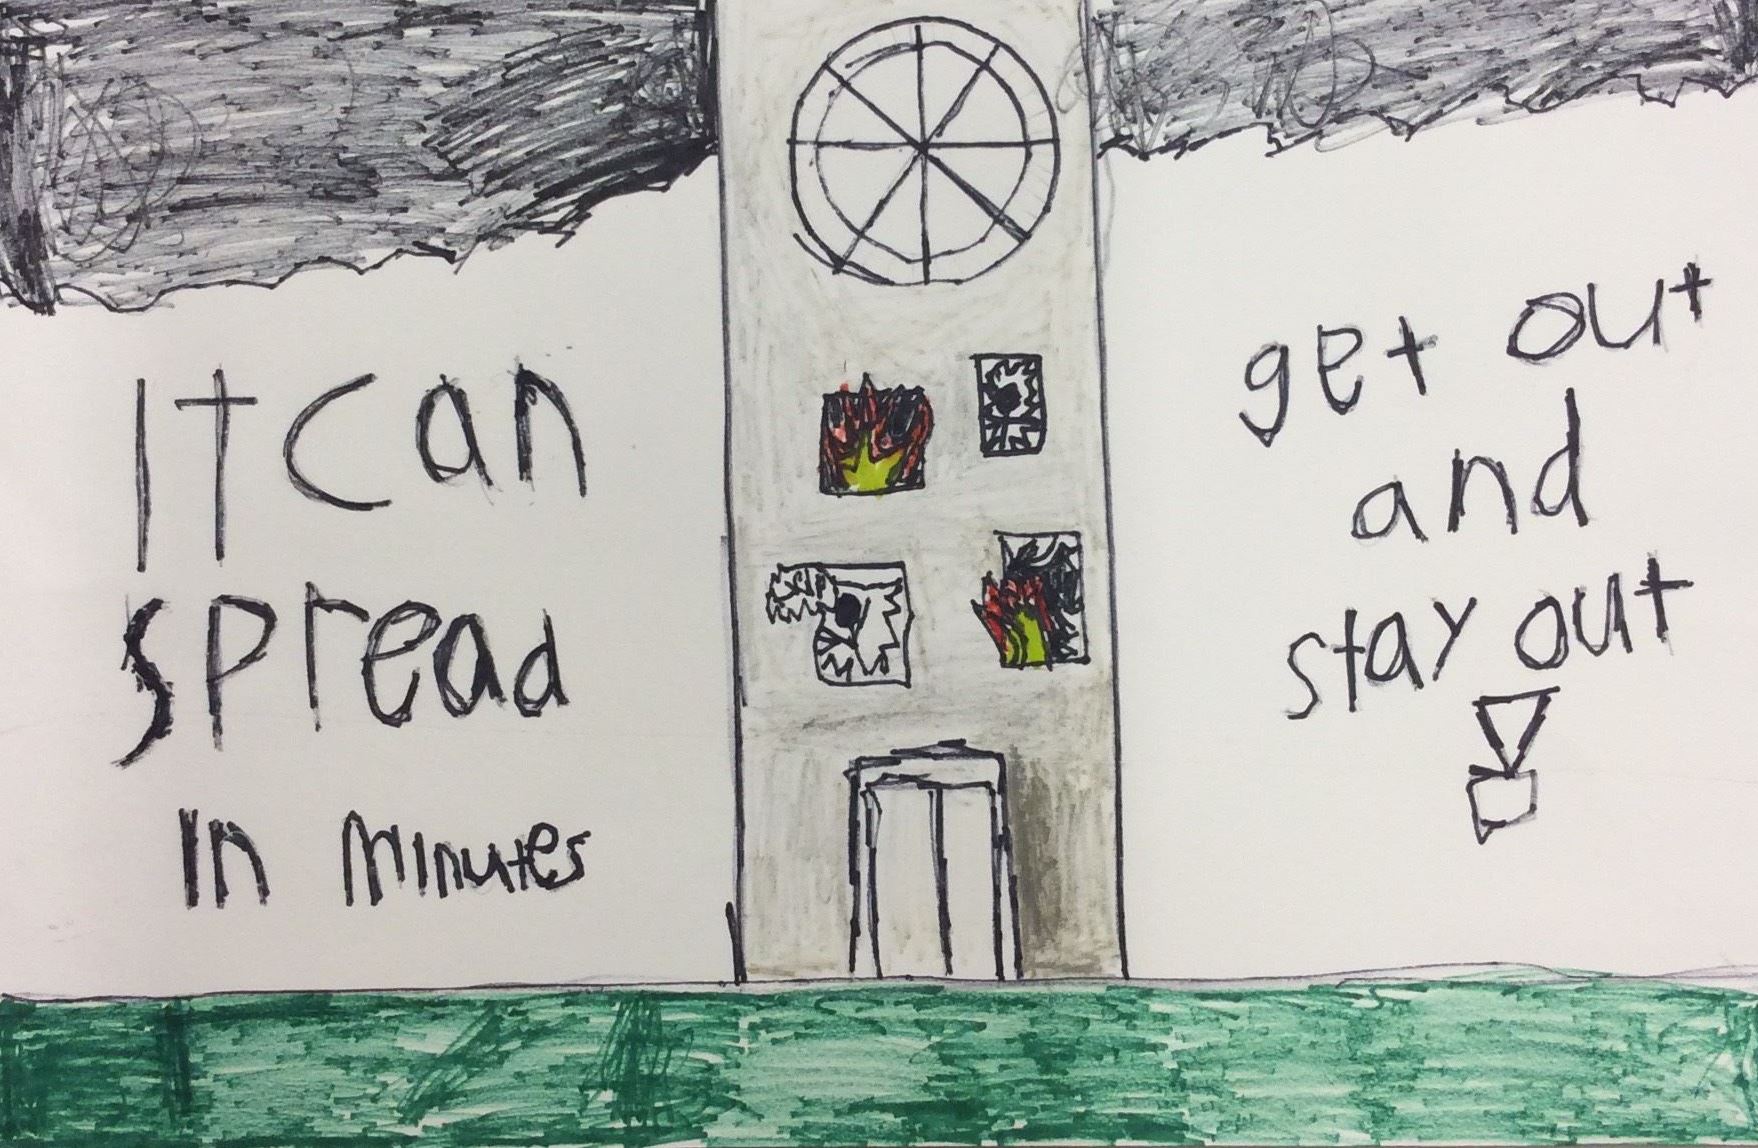 It can
spread
in minutes
get out
and
stay out
!